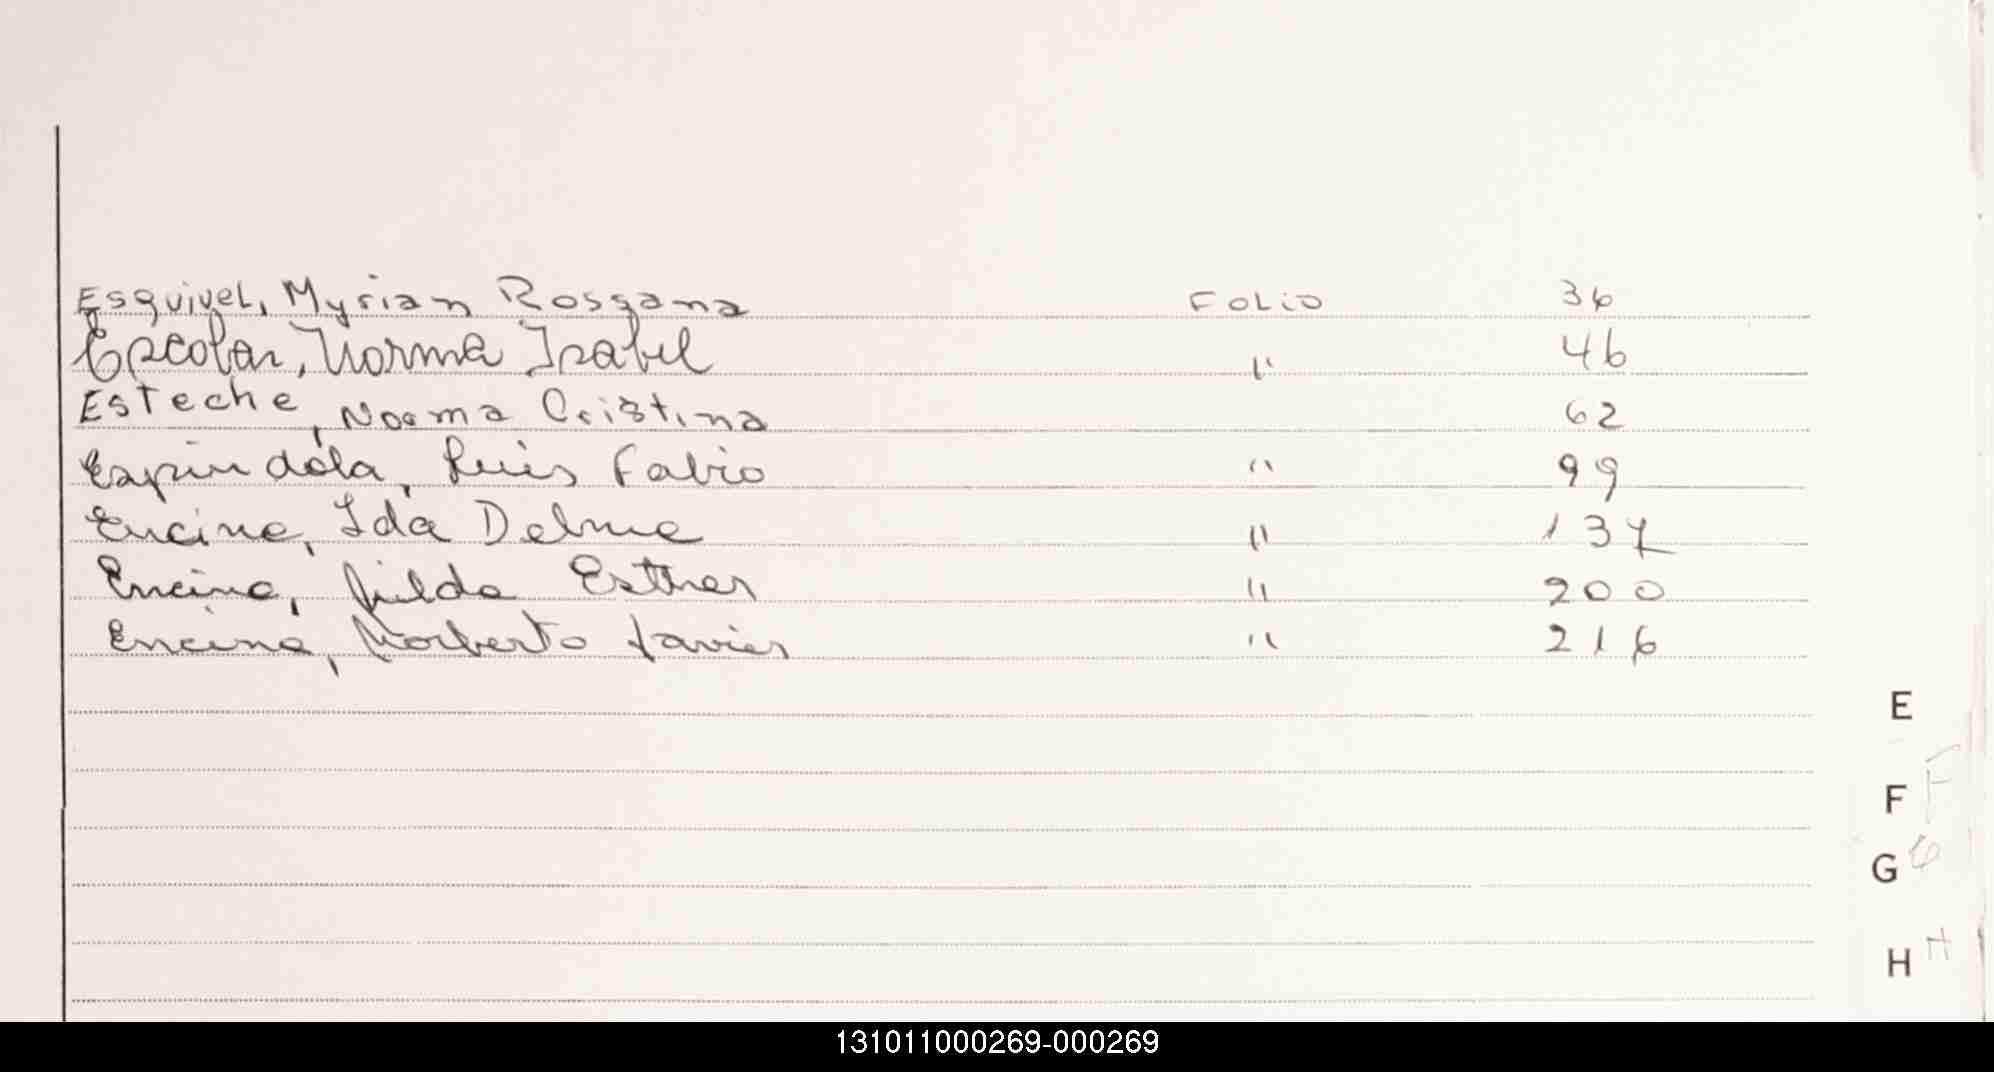 Esquivel, Myrian Rossana Folio 36
Escobar, Norma Isabel " 46
Esteche, Norma Cristina 62
Espindola, Luis Fabio " 99
Encina, Ida Delma " 137
Encina, Gilda Esther " 200
Encina, Norberto Javier " 216
E
F F
G G
H H
131011000269-000269